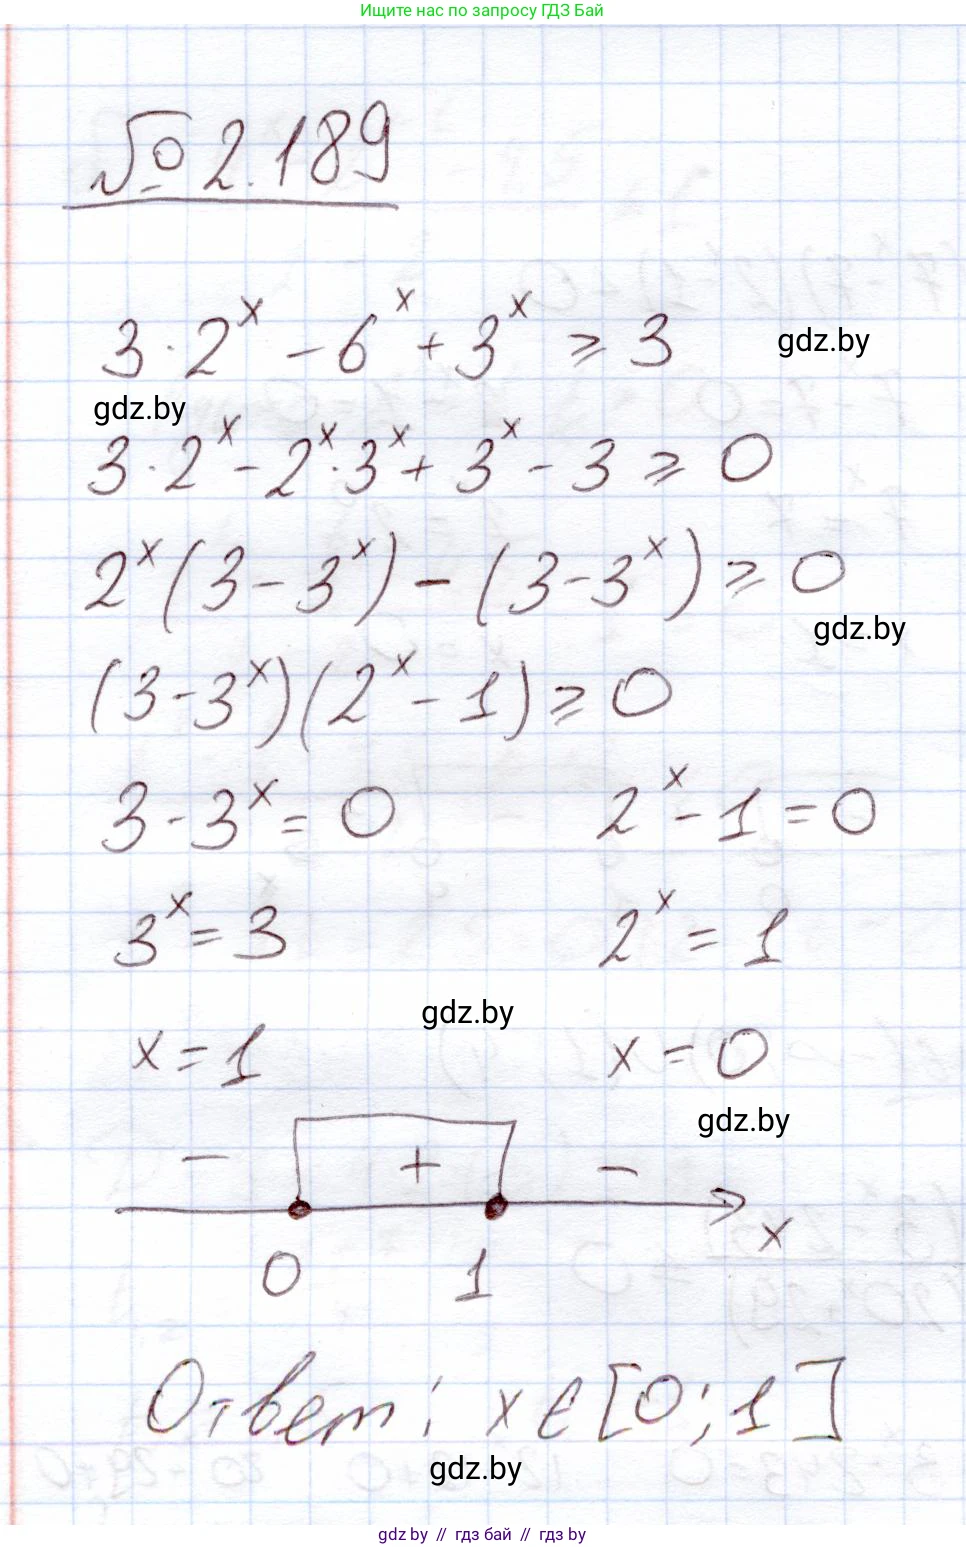 Ищите нас по запросу ГДЗ Бай
№ 2.189
3 · 2^x - 6^x + 3^x ⩾ 3
gdz.by
gdz.by
3 · 2^x - 2^x · 3^x + 3^x - 3 ⩾ 0
2^x (3 - 3^x) - (3 - 3^x) ⩾ 0
gdz.by
(3 - 3^x)(2^x - 1) ⩾ 0
3 - 3^x = 0 2^x - 1 = 0
3^x = 3 2^x = 1
gdz.by
x = 1 x = 0
gdz.by
- + -
x
0 1
Ответ: x ∈ [0; 1]
gdz.by
gdz by // гдз бай // gdz by